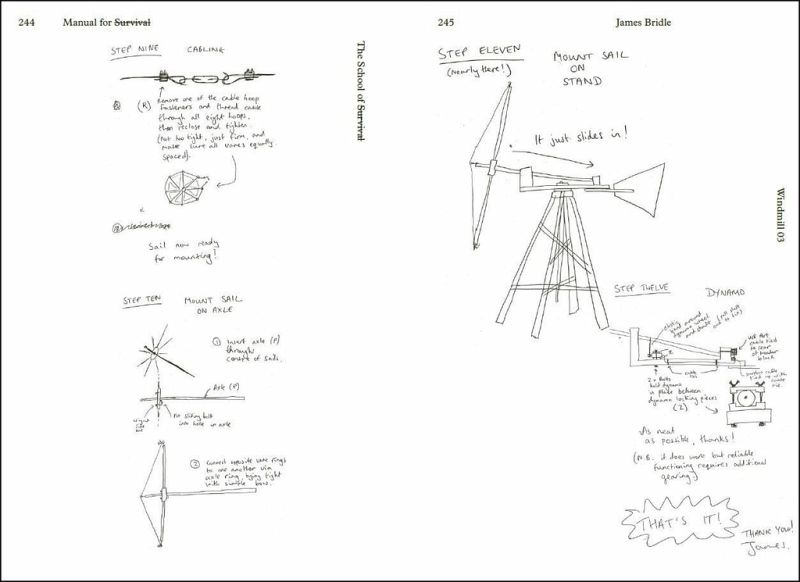 244 Manual for Survival
The School of Survival
STEP NINE CABLING
(R) Remove one of the cable hoop
fasteners and thread cable
through all eight hoops,
then reclose and tighten.
(Not too tight, just firm, and
make sure all vanes equally
spaced).
Sail now ready
for mounting!
STEP TEN MOUNT SAIL
ON AXLE
① Insert axle (P)
through
centre of sails.
Axle (P)
Pin sliding bolt
into hole in axle
② Connect opposite vane rings
to one another via
axle ring, tying tight
with simple bow.
245 James Bridle
Windmill 03
STEP ELEVEN
(Nearly there!)
MOUNT SAIL
ON
STAND
It just slides in!
STEP TWELVE DYNAMO
elastic
band around
dynamo wheel
and shaft
2 x Bolts
hold dynamo
in place between
dynamo locking pieces
(Z)
As neat
as possible, thanks!
(N.B. it does work but reliable
functioning requires additional
gearing.)
THAT'S IT!
THANK YOU!
James.